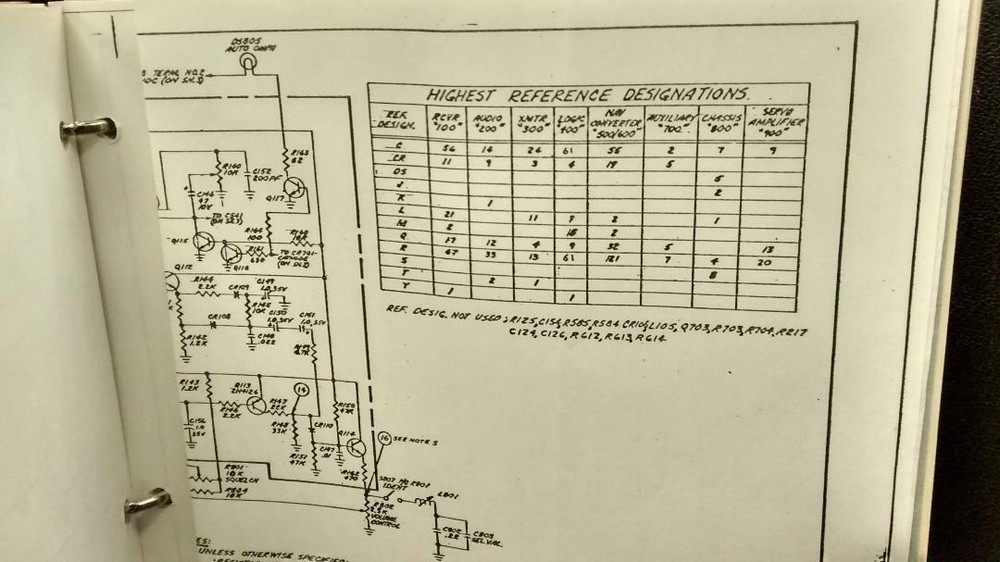 DS805
AUTO OMNI
(ON SH.3)
HIGHEST REFERENCE DESIGNATIONS.
REF. DESIGN. RCVR "100" AUDIO "200" XMTR "300" LOGIC "400" NAV CONVERTER "500/600" AUXILIARY "700" CHASSIS "800" SERVO AMPLIFIER "900"
C 56 14 24 61 56 2 7 9
CR 11 9 3 4 19 5
DS 5
J 2
K 1
L 21 11 7 2 1
M 2 18 2
Q 17 12 4 9 32 5 13
R 67 33 13 61 121 7 4 20
S 8
T 2 1
Y 1 1
REF. DESIG. NOT USED: R125, C154, R585, R584 CR104, L105, Q703, R703, R704, R217
C124, C126, R612, R613, R614
R163
82
R140
10K
C152
200PF
Q117
C146
47
10V
TO C541
(ON SH.3)
R165
100
Q115
Q116
R161
TO CR701
CATHODE
(ON SH.2)
Q112
R144
2.2K
CR109
C149
1.0,35V
R145
10K
C150
1.0,35V
C151
1.0,35V
CR108
C148
.022
R142
1.2K
R143
1.2K
Q113
2N4126
R147
22K
14
R146
2.2K
R150
47K
C156
1.0
35V
R148
33K
CR110
Q114
R151
47K
C147
.01
16 SEE NOTE 5
R801
10K
SQUELCH
R804
R162
470
S807 NO R801
IDENT
L801
R802
2.5K
VOLUME
CONTROL
C802
.22
C803
SEL.VAL.
UNLESS OTHERWISE SPECIFIED